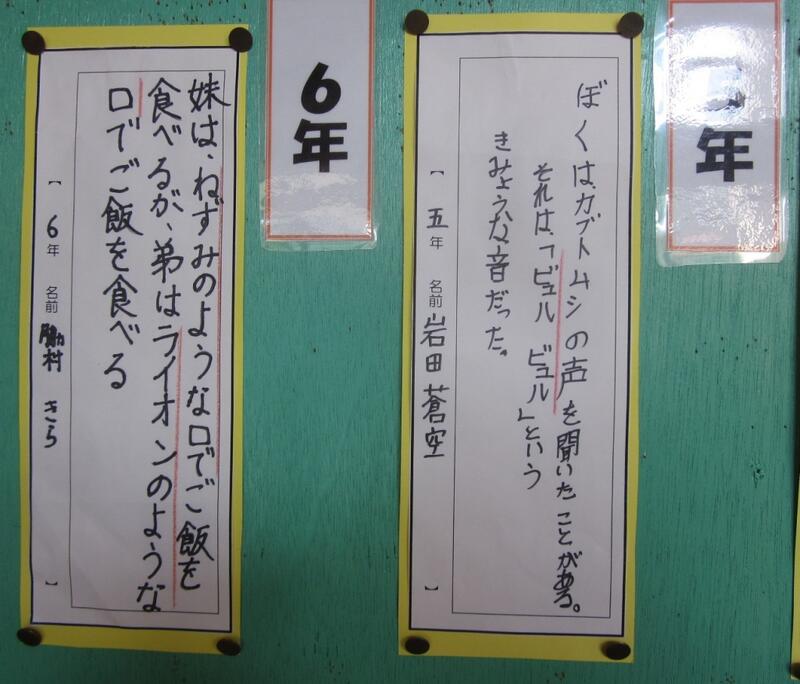 年
ぼくは、カブトムシの声を聞いたことがある。
それは、「ビュル ビュル」という
きみょうな音だった。
【 五年 名前 岩田 蒼空 】
6年
妹は、ねずみのような口でご飯を
食べるが、弟はライオンのような
口でご飯を食べる
【 6年 名前 脇村 さら 】